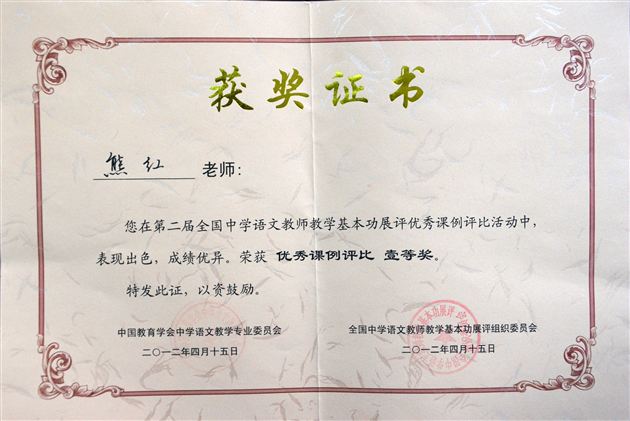 获奖证书
熊红 老师：
您在第二届全国中学语文教师教学基本功展评优秀课例评比活动中，
表现出色，成绩优异。荣获 优秀课例评比 壹等奖。
特发此证，以资鼓励。
中国教育学会中学语文教学专业委员会 全国中学语文教师教学基本功展评组织委员会
二〇一二年四月十五日 二〇一二年四月十五日